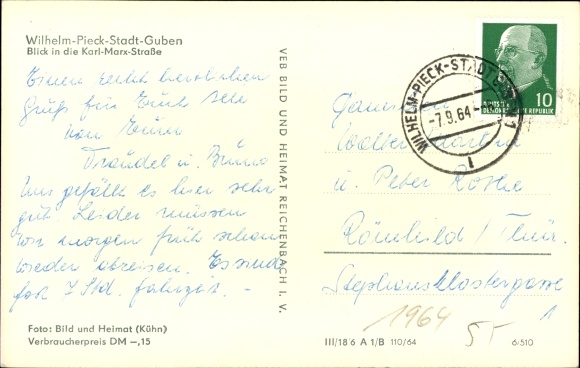 Wilhelm-Pieck-Stadt-Guben
Blick in die Karl-Marx-Straße
Einen recht herzlichen
Gruß für Euch
von Euren
Traudel u. Bruno
Uns gefällt es hier sehr
gut. Leider müssen
wir morgen früh schon
wieder abreisen. Es sind
fast 7 Std. Fahrzeit. -
Foto: Bild und Heimat (Kühn)
Verbraucherpreis DM -,15
VEB BILD UND HEIMAT REICHENBACH I. V.
WILHELM-PIECK-STADT GUBEN 1
-7.9.64-
10
DEUTSCHE
DEMOKRATISCHE REPUBLIK
Walter
u. Peter
Römhild / Thür.
Stephansklostergasse
1
1964
III/18 6 A 1/B 110/64
6/510